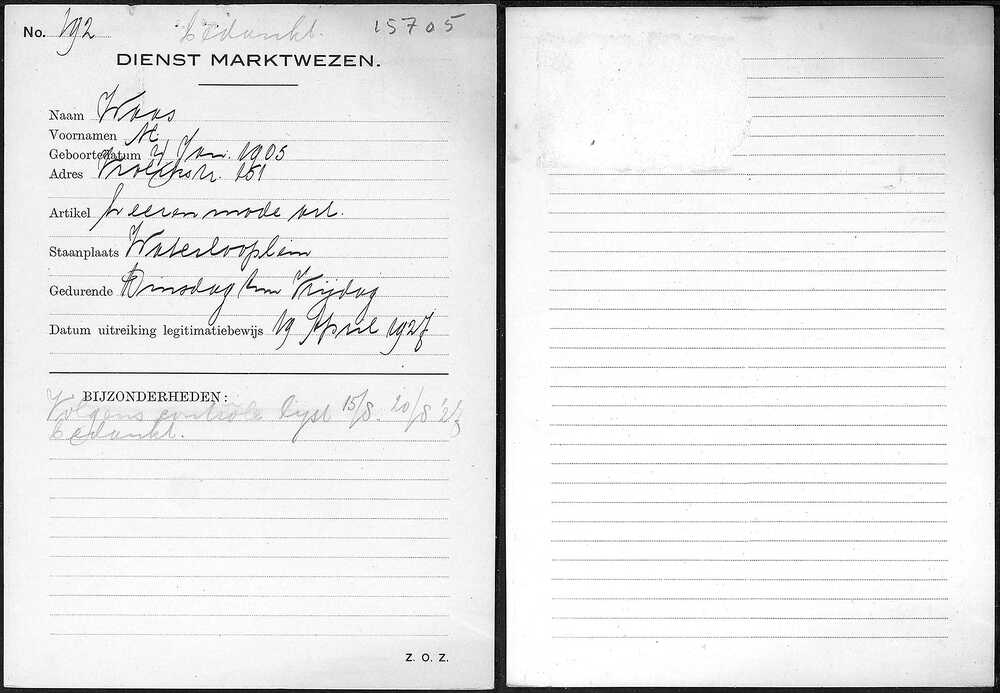 No. 192 bedankt. 15705
DIENST MARKTWEZEN.
Naam Waas
Voornamen M.
Geboortedatum 4 Jan. 1905
Adres Trolikstr. 151
Artikel Leeren mode art.
Staanplaats Waterlooplein
Gedurende Dinsdag t/m Vrijdag
Datum uitreiking legitimatiebewijs 19 April 1927
BIJZONDERHEDEN:
Volgens controle lijst 15/8. 20/8 '27
bedankt.
Z. O. Z.